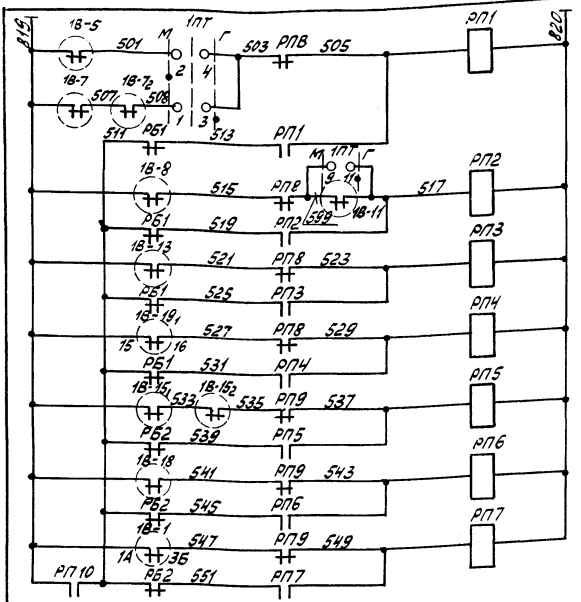 819
820
1В-5
501
М
1ПТ
Г
503
РП8
505
РП1
2
4
1В-7
507
1В-7₂
508
1
3
511
РБ1
513
РП1
1В-8
515
РП8
М
1ПТ
Г
9
11
599
1В-11
517
РП2
РБ1
519
РП2
1В-13
521
РП8
523
РП3
РБ1
525
РП3
1В-19₁
15
16
527
РП8
529
РП4
РБ1
531
РП4
1В-15₁
533
1В-15₂
535
РП9
537
РП5
РБ2
539
РП5
1В-18
541
РП9
543
РП6
РБ2
545
РП6
1В-1
1А
3Б
547
РП9
549
РП7
РП10
РБ2
551
РП7